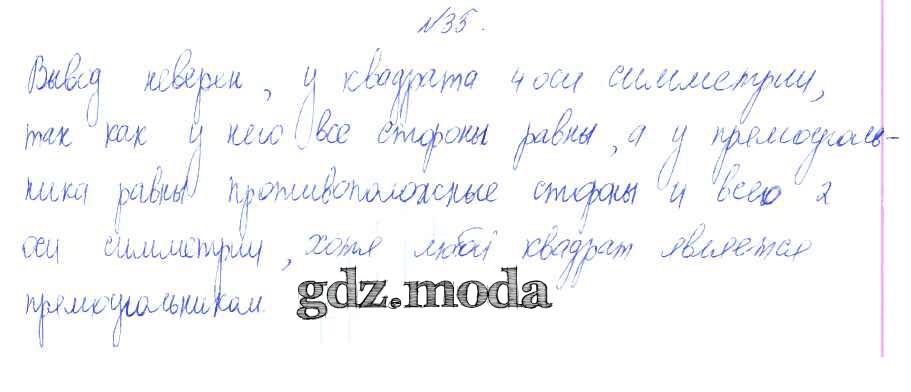 №35.
Вывод неверен, у квадрата 4 оси симметрии,
так как у него все стороны равны, а у прямоуголь-
ника равны противоположные стороны и всего 2
оси симметрии, хотя любой квадрат является
прямоугольником.
gdz.moda